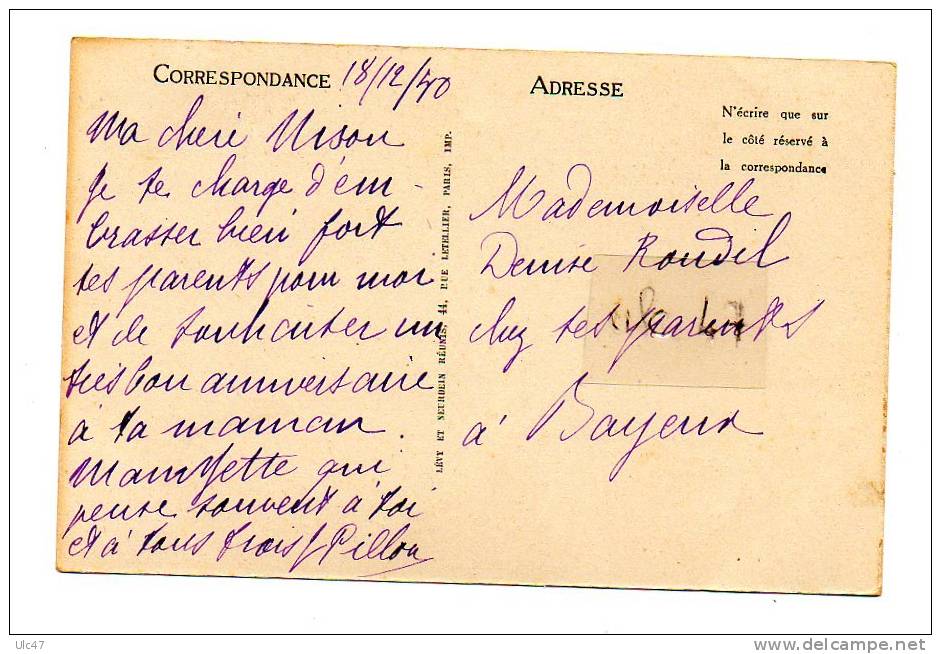 CORRESPONDANCE 18/12/40
Ma chère Nison
Je te charge d'em-
brasser bien fort
tes parents pour moi
et de souhaiter un
très bon anniversaire
à ta maman.
qui
pense souvent à toi
et à tous trois / Pillon
LÉVY ET NEURDEIN RÉUNIS, 44, RUE LETELLIER, PARIS, IMP.
ADRESSE
N'écrire que sur
le côté réservé à
la correspondance
Mademoiselle
Denise Roudil
chez ses parents
à Bayeux
Ulc47
www.delcampe.net